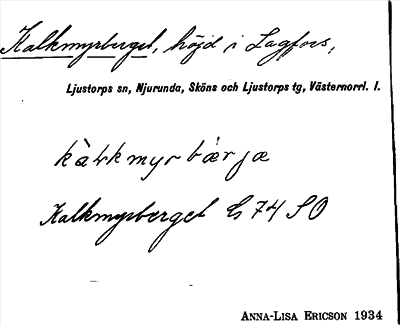 Kalkmyrberget, höjd i Lagfors,
Ljustorps sn, Njurunda, Sköns och Ljustorps tg, Västernorrl. l.
Kalkmyrberget G 74 SO
ANNA-LISA ERICSON 1934